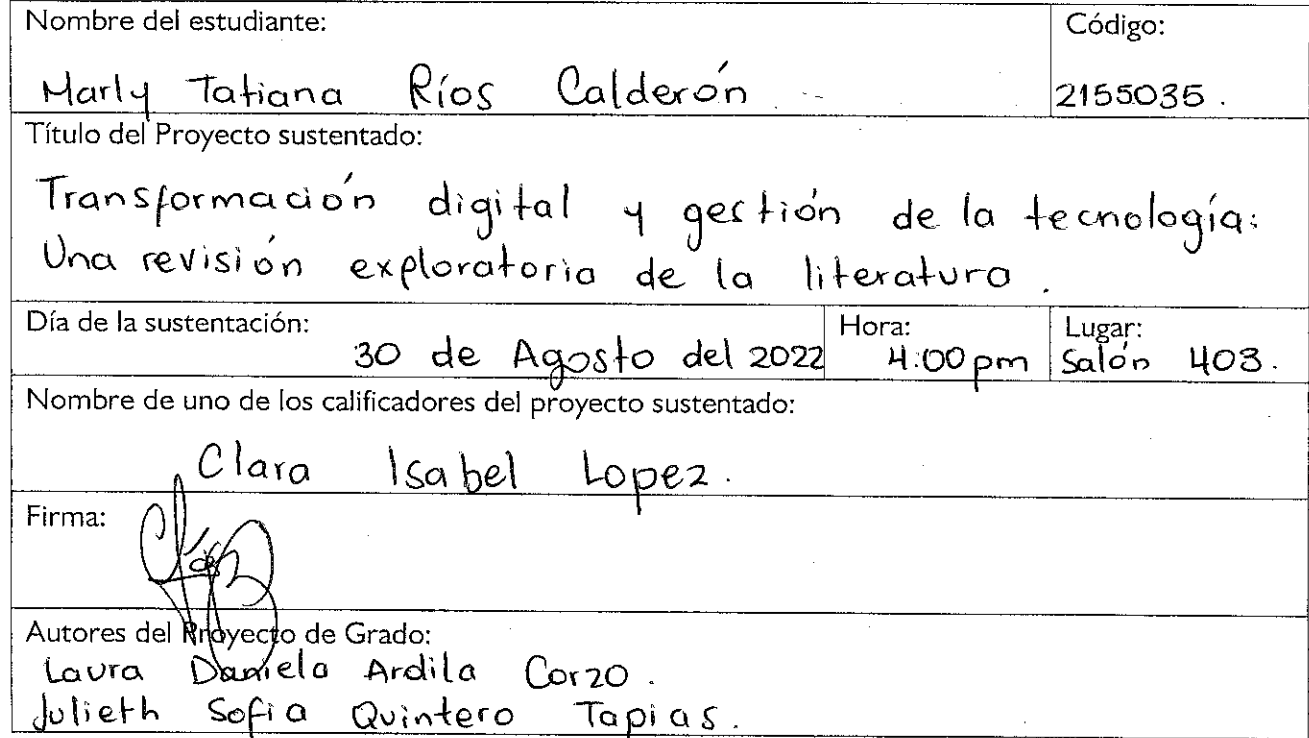 Nombre del estudiante:
Código:
Marly Tatiana Ríos Calderón
2155035.
Título del Proyecto sustentado:
Transformación digital y gestión de la tecnología:
Una revisión exploratoria de la literatura.
Día de la sustentación:
30 de Agosto del 2022
Hora:
4:00 pm
Lugar:
Salón 403.
Nombre de uno de los calificadores del proyecto sustentado:
Clara Isabel Lopez.
Firma:
Autores del Proyecto de Grado:
Laura Daniela Ardila Corzo.
Julieth Sofia Quintero Tapias.